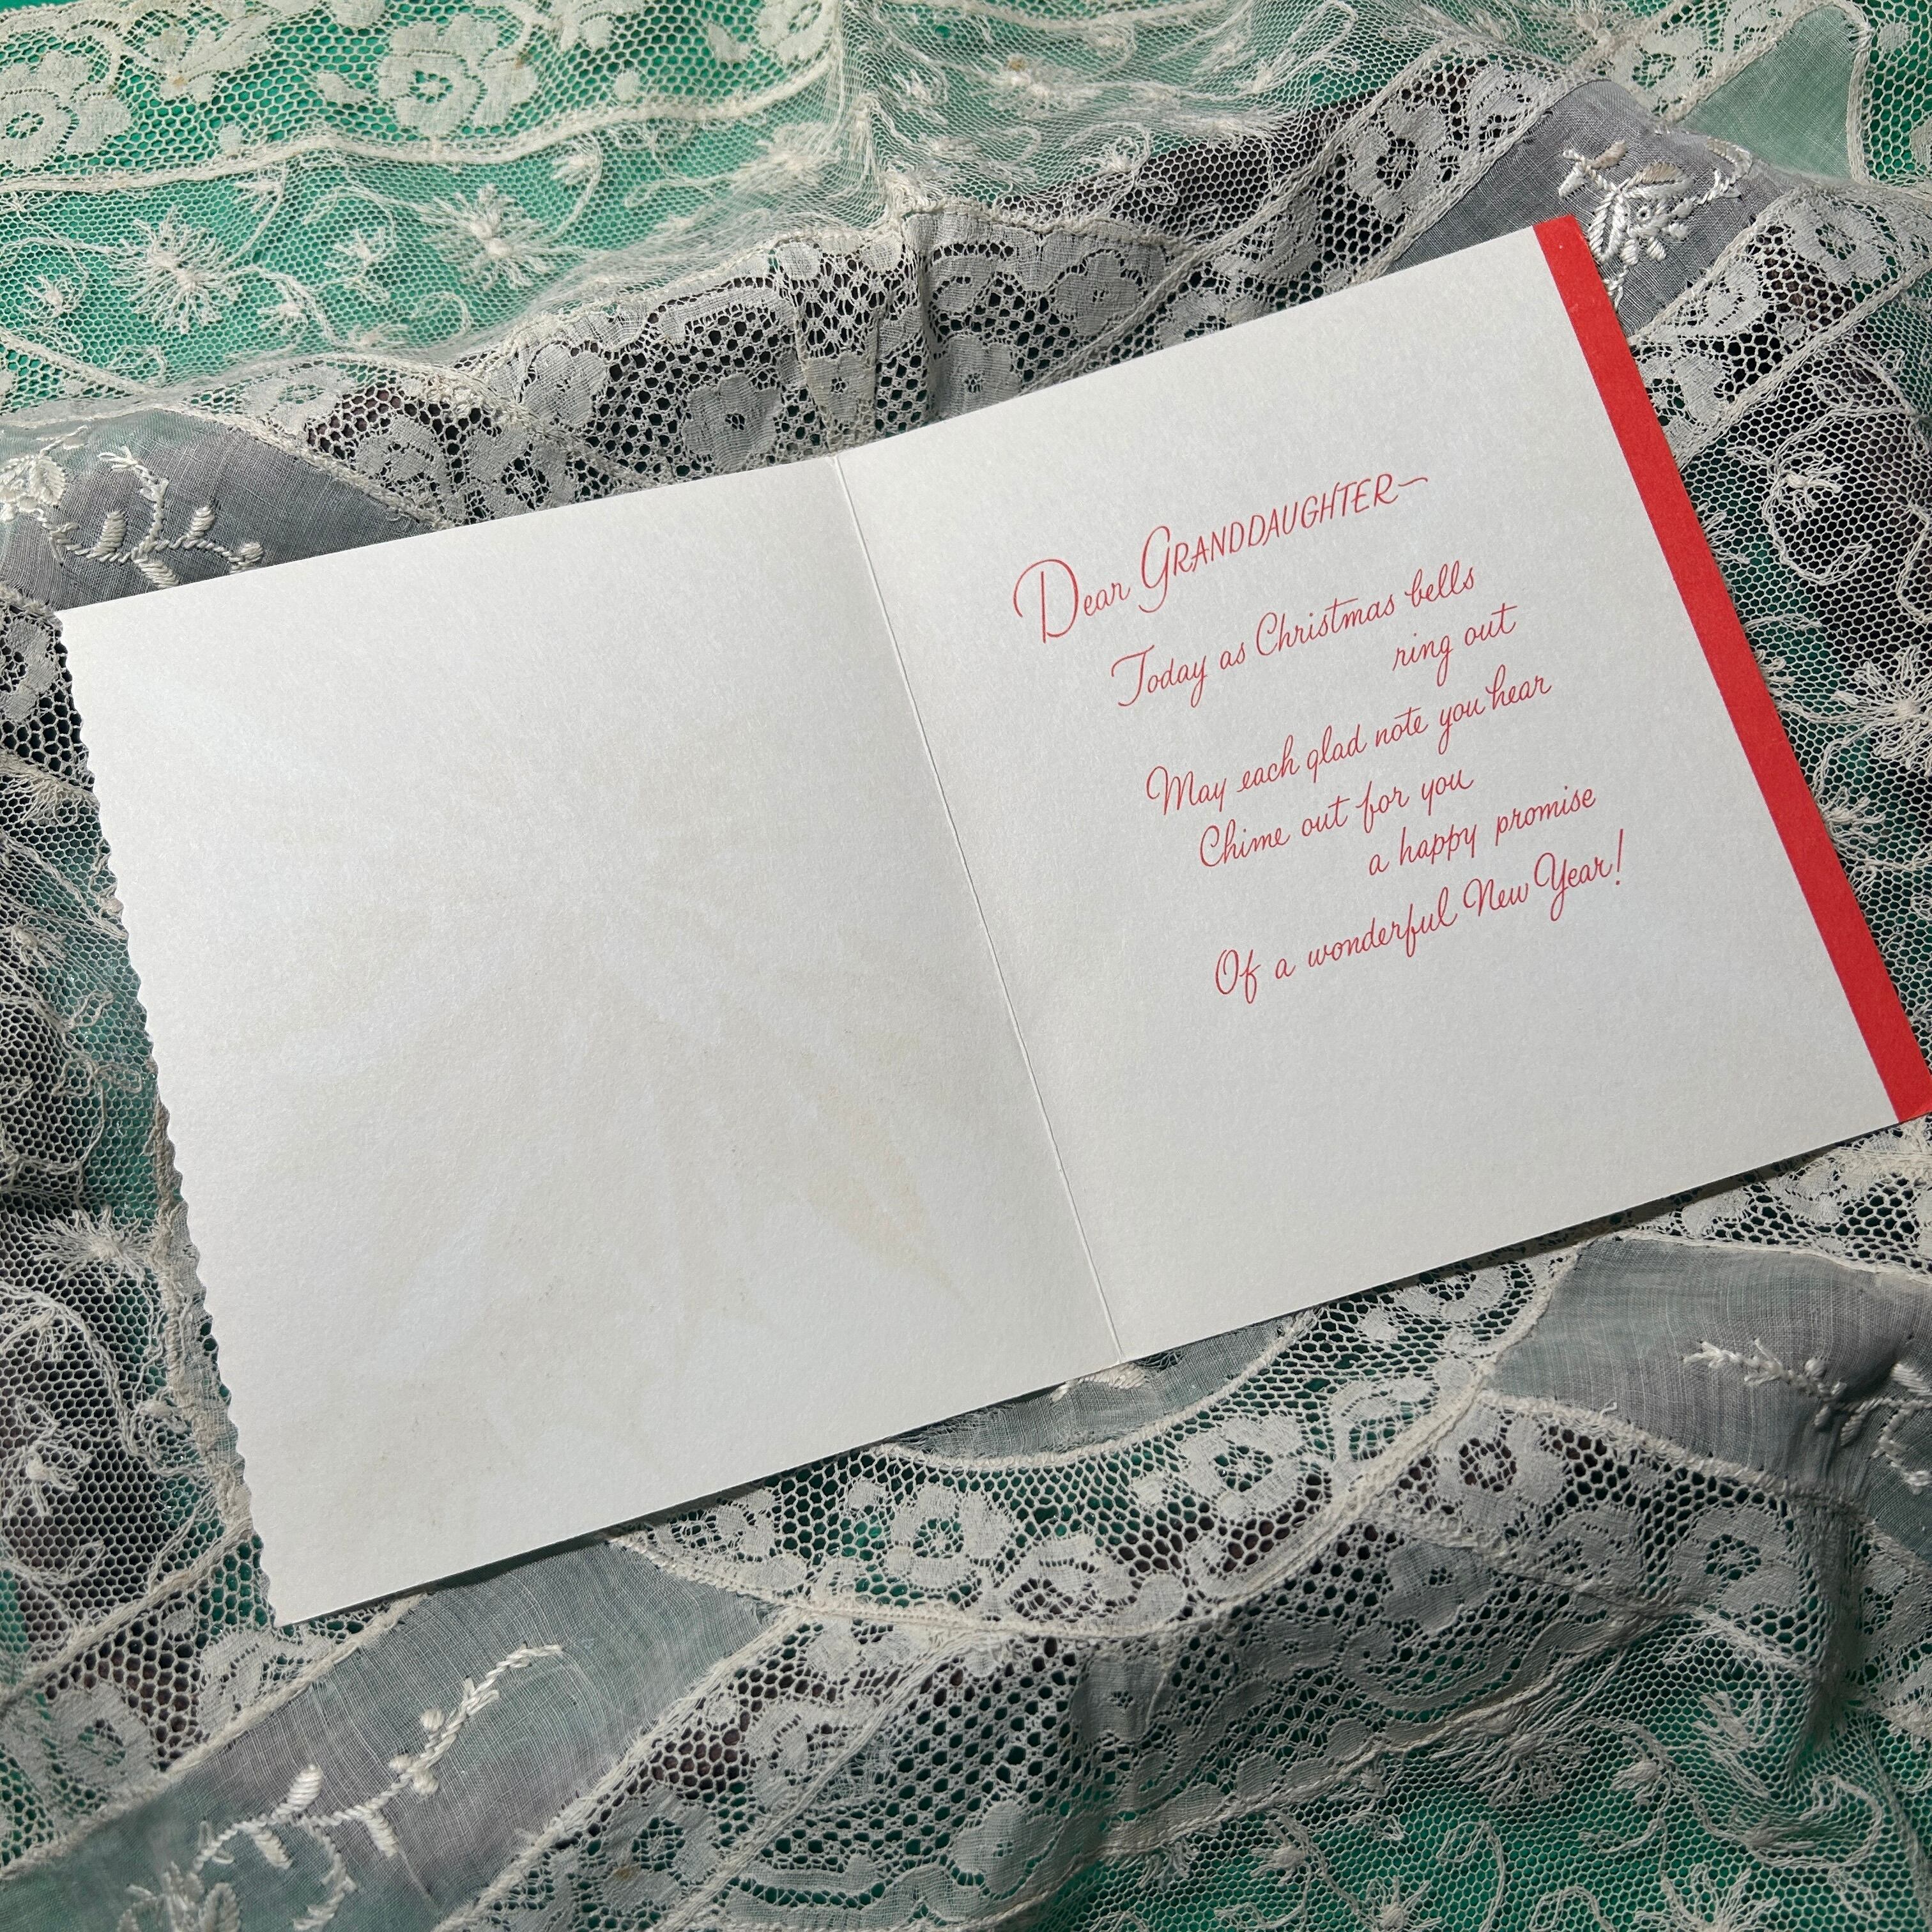 Dear GRANDDAUGHTER~
Today as Christmas bells
ring out
May each glad note you hear
Chime out for you
a happy promise
Of a wonderful New Year!